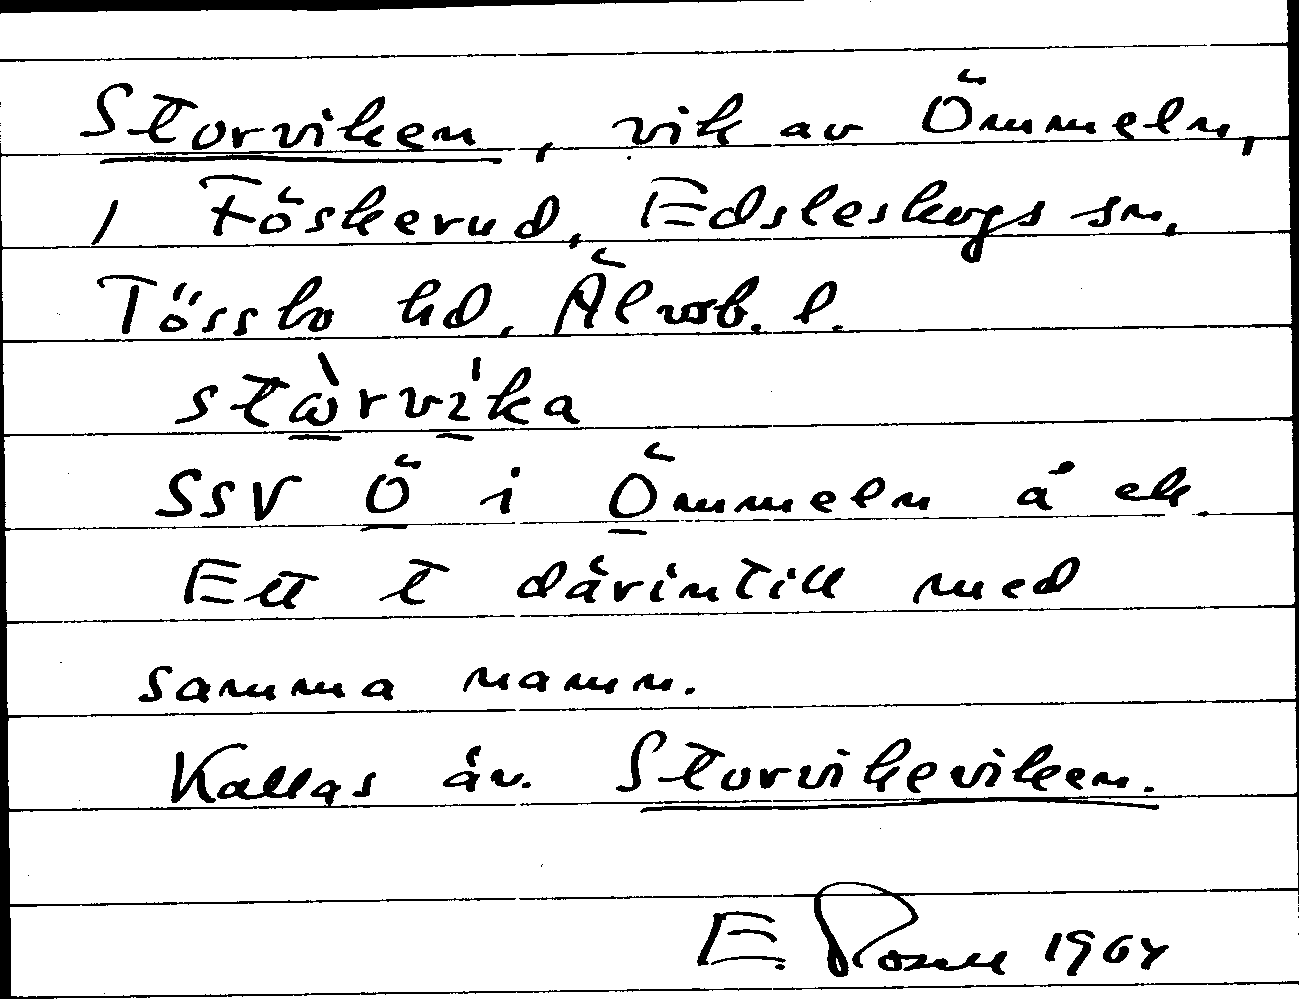 Storviken, vik av Ömmeln,
i Föskerud, Edsleskogs sn,
Tössbo hd, Älvsb. l.
stὼrvíka
SSV Ö i Ömmeln å ek.
Ett t därintill med
samma namn.
Kallas äv. Storvikeviken.
E. 1964